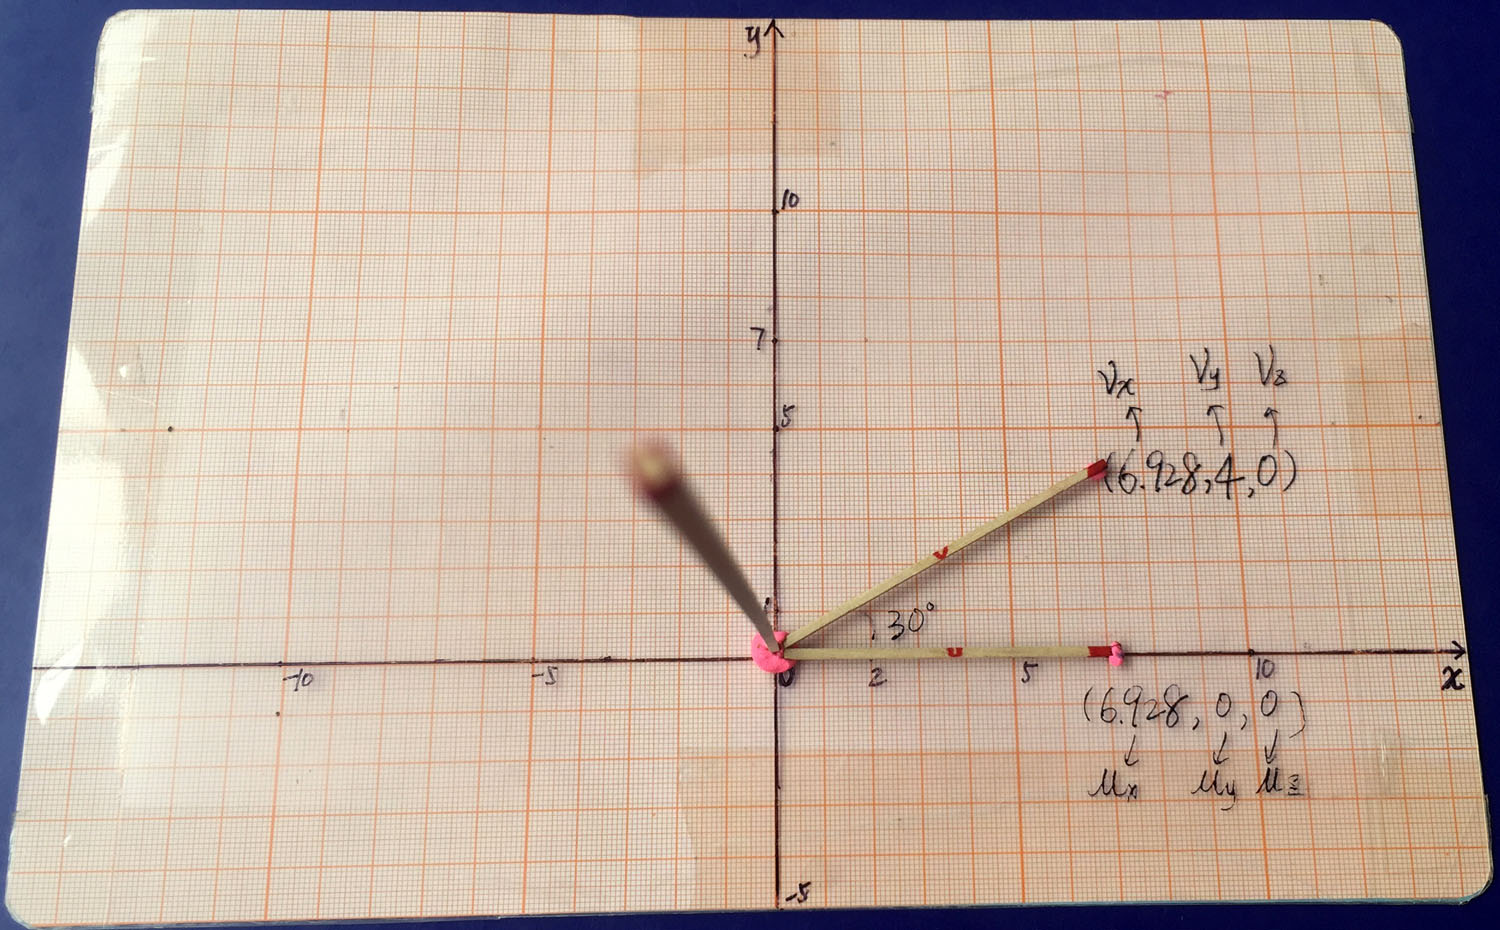 y
10
7
5
Vx Vy Vz
(6.928,4,0)
1
30°
-10 -5 0 2 5 10 x
(6.928, 0, 0)
u
v
Ux Uy Uz
-5